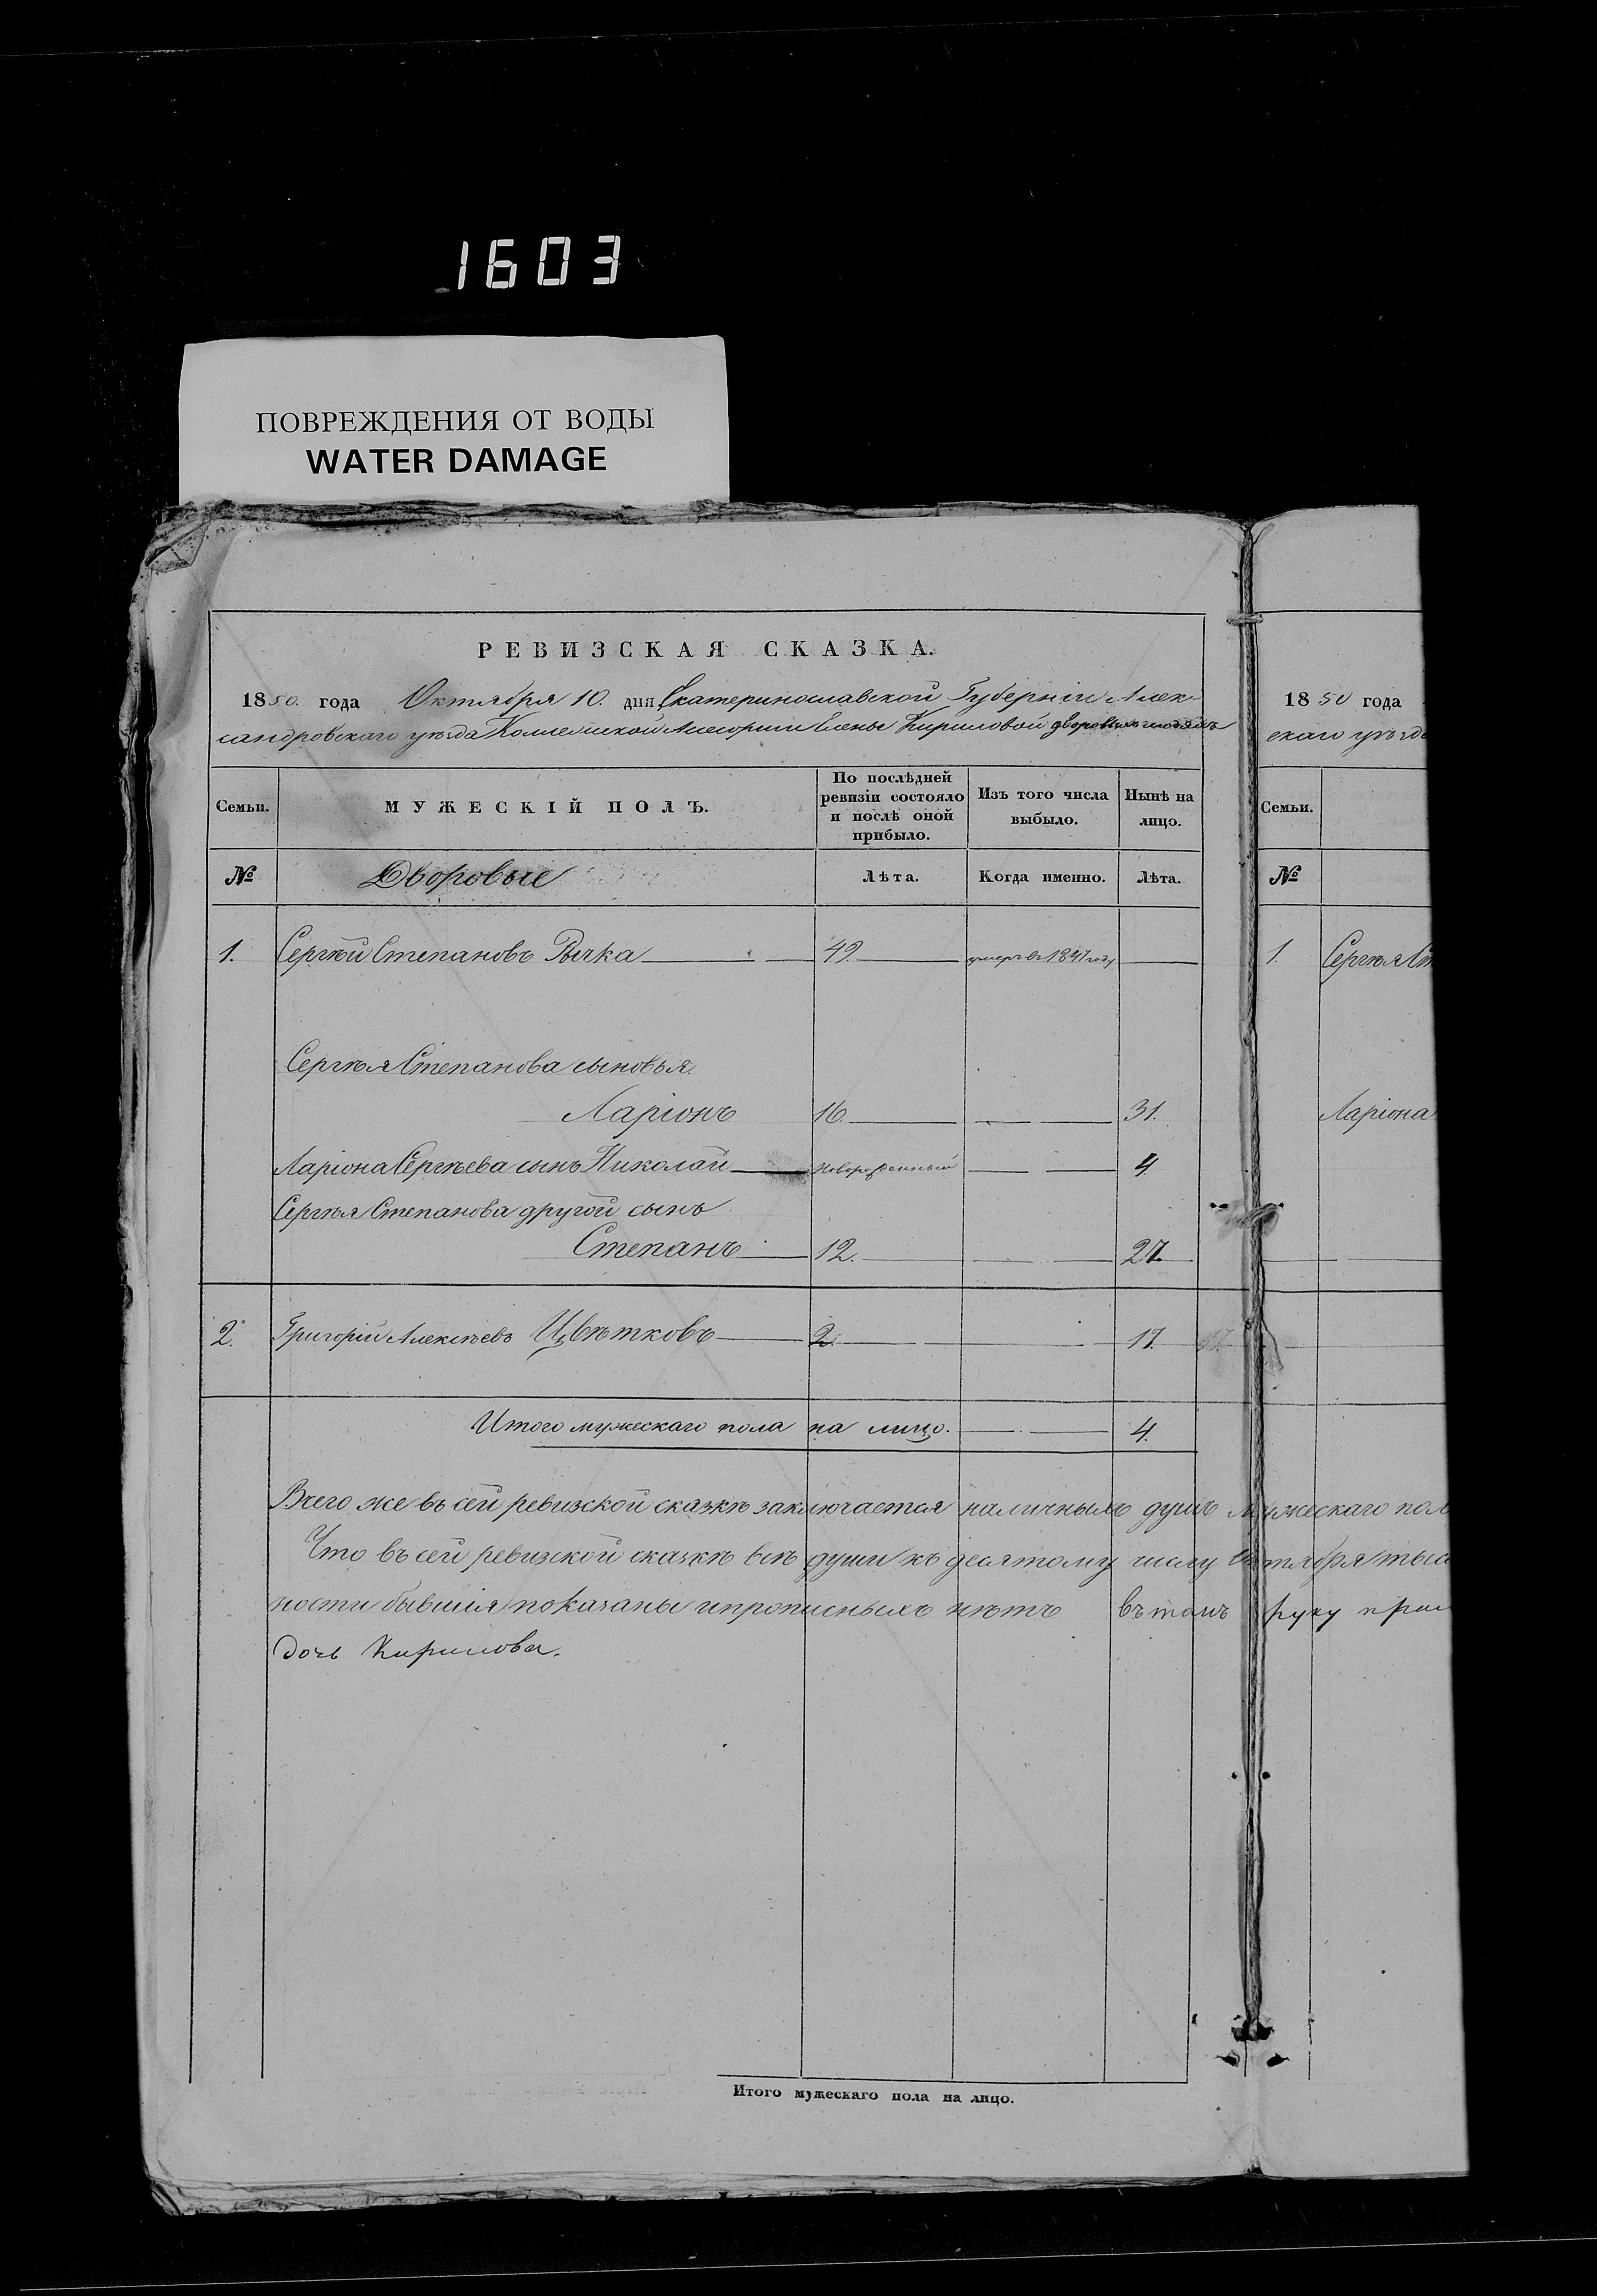 1603
ПОВРЕЖДЕНИЯ ОТ ВОДЫ
WATER DAMAGE
РЕВИЗСКАЯ СКАЗКА.
1850. года Октября 10. дня Екатеринославской Губерніи Алек-
сандровскаго уѣзда Коллежской Ассесорши Елены Кириловой дворовымъ людямъ
Семьи.
МУЖЕСКІЙ ПОЛЪ.
По послѣдней ревизіи состояло и послѣ оной прибыло.
Изъ того числа выбыло.
Нынѣ на лицо.
№ Дворовые Лѣта. Когда именно. Лѣта.
1. Сергѣй Степановъ Рычка 49. умеръ въ 1847 году
Сергѣя Степанова сыновья.
Ларіонъ 16. 31.
Ларіона Сергѣева сынъ Николай новорожденный 4.
Сергѣя Степанова другой сынъ
Степанъ 12. 27.
2. Григорій Алексѣевъ Цвѣтковъ 2. 17. 17.
Итого мужескаго пола на лицо. 4.
Всего же въ сей ревизской сказкѣ заключается наличныхъ душъ мужескаго пол
Что въ сей ревизской сказкѣ всѣ души къ десятому числу Октября тыся
ности бывшія показаны и прописныхъ нѣтъ въ томъ руку при
дочь Кирилова.
Итого мужескаго пола на лицо.
1850 года
скаго уѣзда
Семьи.
№
1. Сергѣя Ст
Ларіона